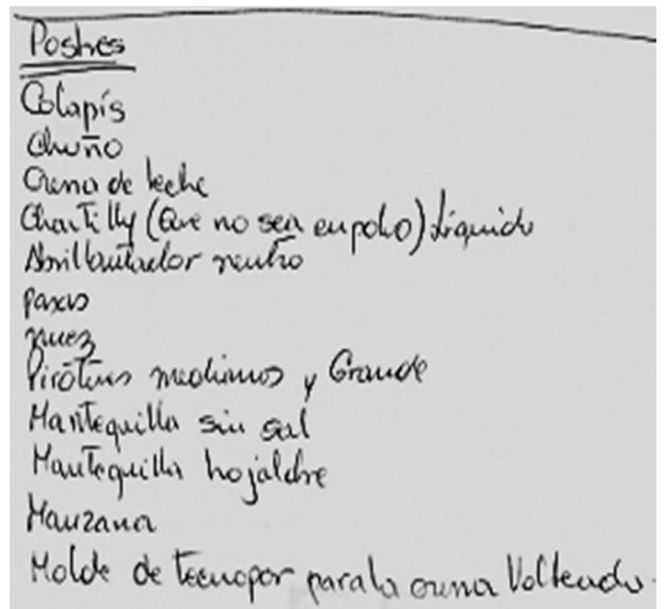 Postres
Colapís
Chuño
Crema de leche
Chantilly (Que no sea en polvo) Líquido
Abrillantador neutro
pasas
nuez
Pirotines medianos y Grande
Mantequilla sin sal
Mantequilla hojaldre
Manzana
Molde de tecnopor para la crema Volteada.